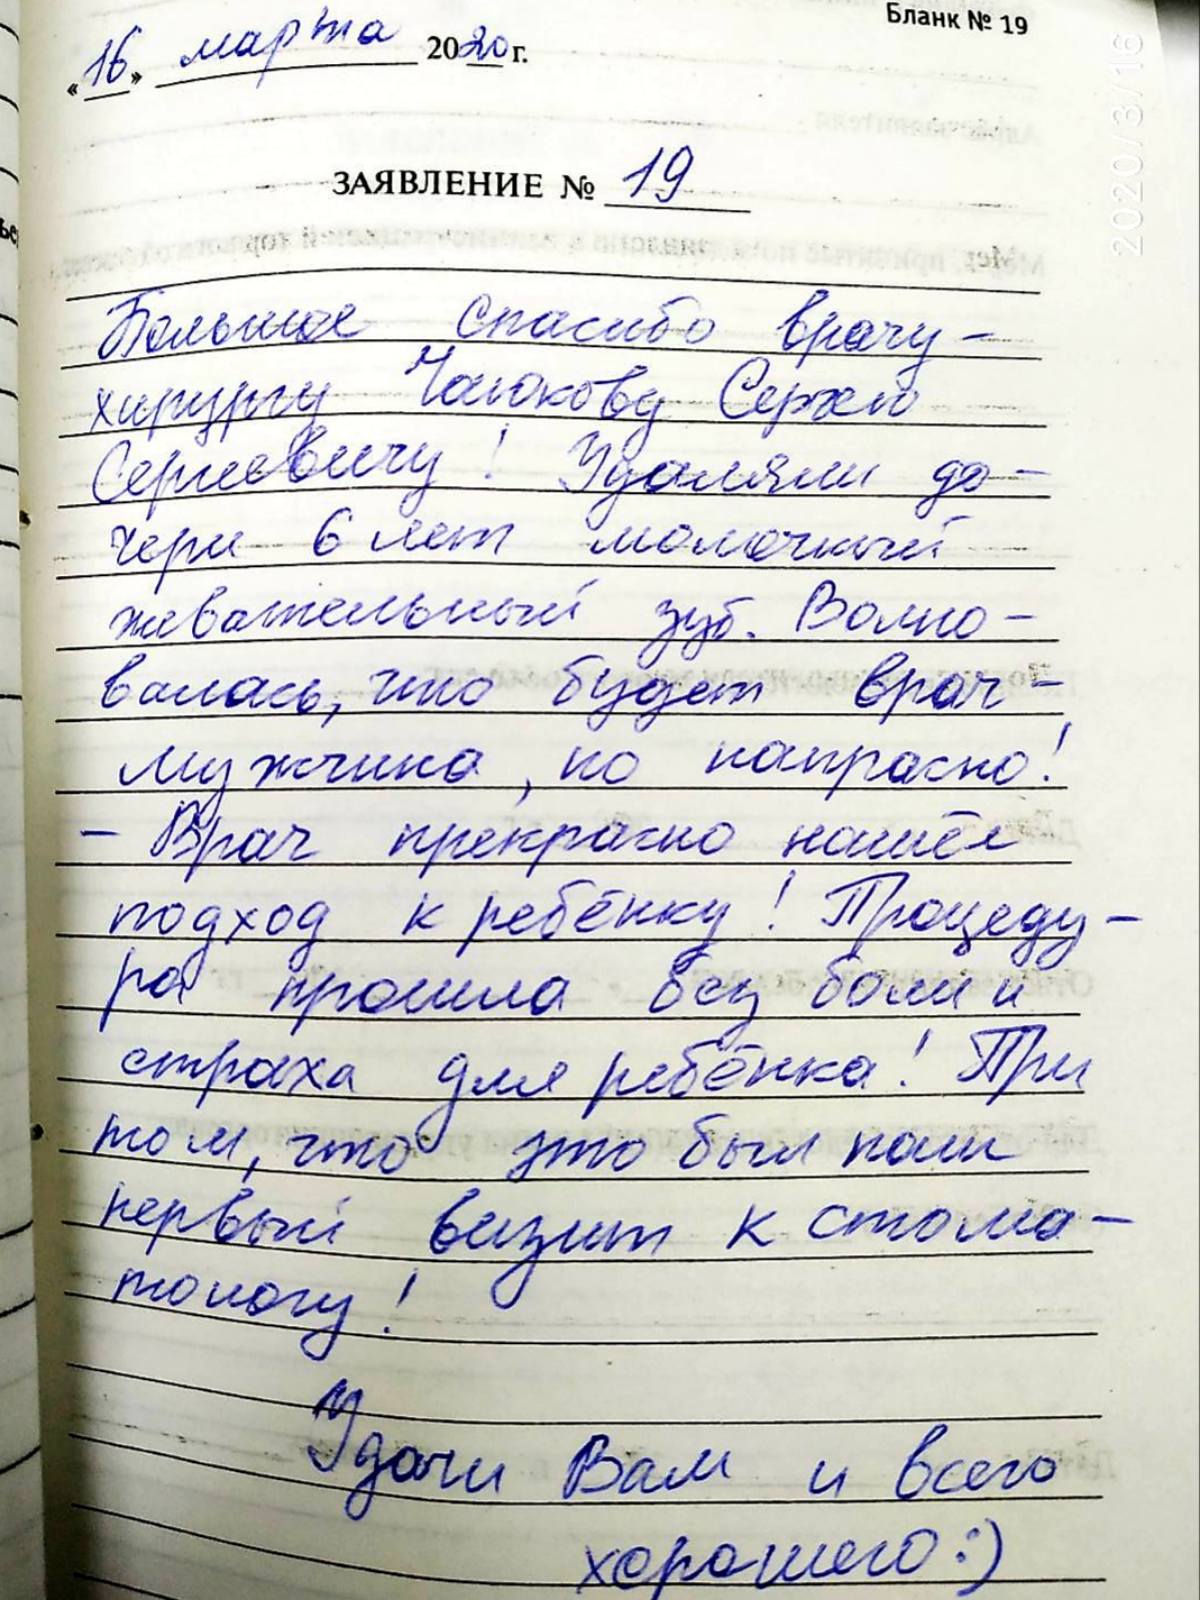 Бланк № 19
«16» марта 2020 г.
2020/3/16
ЗАЯВЛЕНИЕ № 19
Большое спасибо врачу-
хирургу Сержею
Сергеевичу! Удаляли до-
чери 6 лет молочный
жевательный зуб. Волно-
валась, что будет врач-
мужчина, но напрасно!
- Врач прекрасно нашёл
подход к ребёнку! Процеду-
ра прошла без боли и
страха для ребёнка! При
том, что это был наш
первый визит к стома-
тологу!
Удачи Вам и всего
хорошего :)